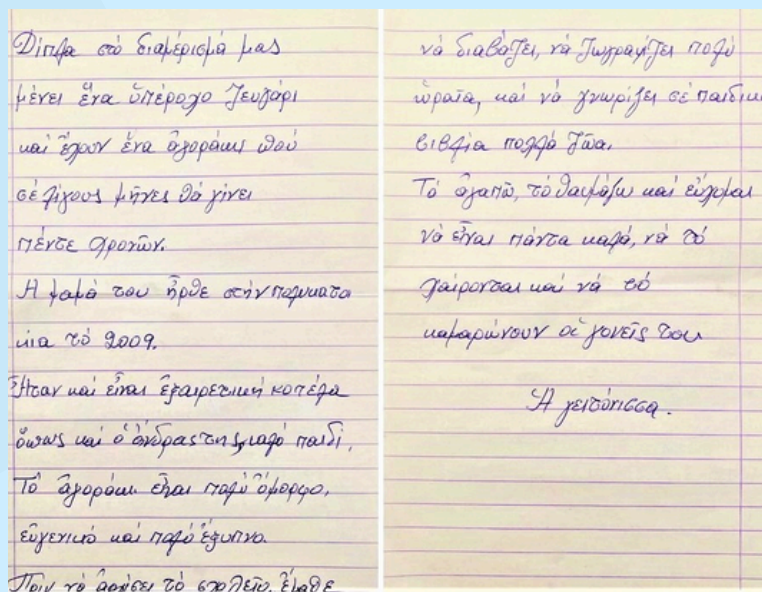 Δίπλα στό διαμέρισμά μας
μένει ἕνα ὑπέροχο ζευγάρι
καί ἔχουν ἕνα ἀγοράκι πού
σέ λίγους μῆνες θά γίνει
πέντε χρονῶν.
Ἡ μαμά του ἦρθε στήν πολυκατοι
κια τό 2009.
Ἦταν καί εἶναι ἐξαιρετική κοπέλα
ὅπως καί ὁ ἄνδρας της, καλό παιδί.
Τό ἀγοράκι εἶναι πολύ ὄμορφο,
εὐγενικό καί πολύ ἔξυπνο.
Πρίν νά ἀρχίσει τό σχολεῖο, ἔμαθε
νά διαβάζει, νά ζωγραφίζει πολύ
ὡραῖα, καί νά γνωρίζει σέ παιδικά
βιβλία πολλά ζῶα.
Τό ἀγαπῶ, τό θαυμάζω καί εὔχομαι
νά εἶναι πάντα καλά, νά τό
χαίρονται καί νά τό
καμαρώνουν οἱ γονεῖς του
Ἡ γειτόνισσα.